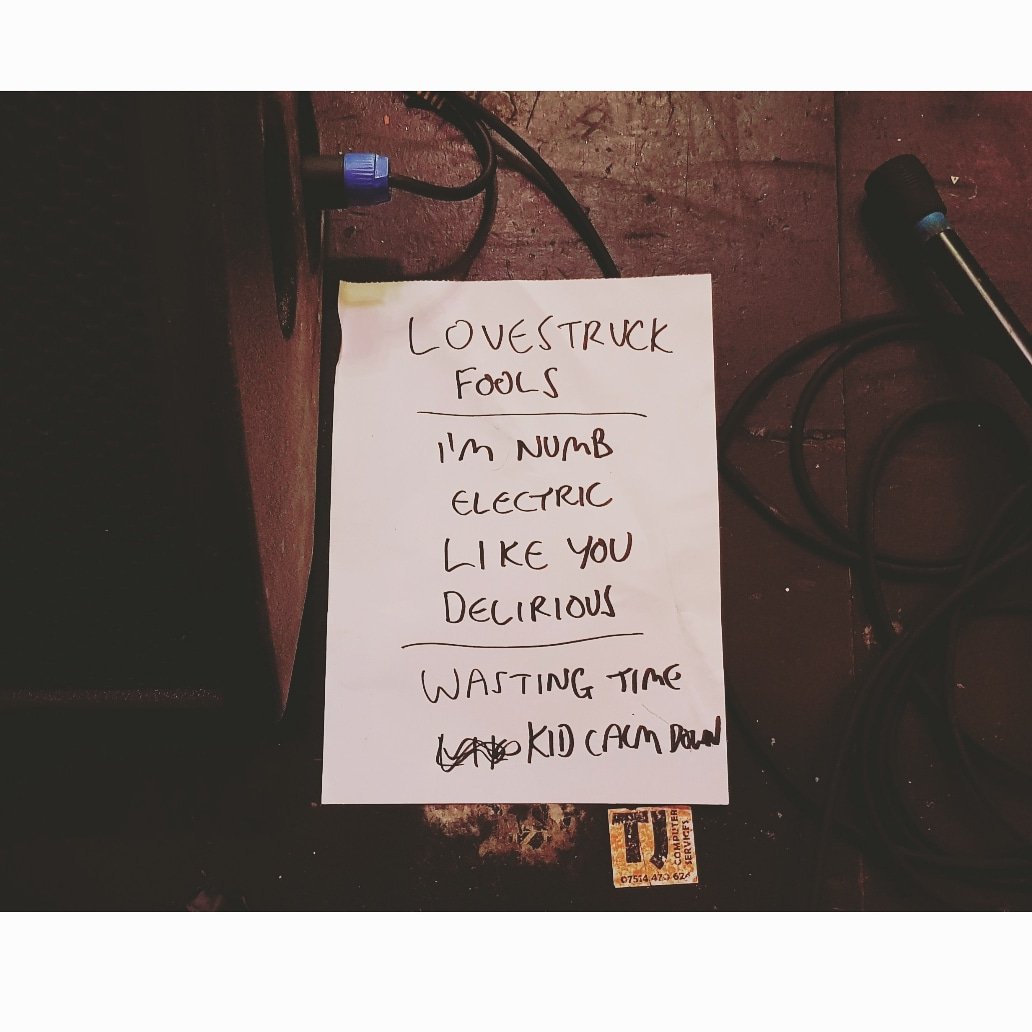 LOVESTRUCK
FOOLS
I'M NUMB
ELECTRIC
LIKE YOU
DELIRIOUS
WASTING TIME
KID CALM DOWN
TJ
COMPUTER
SERVICES
07514 470 624